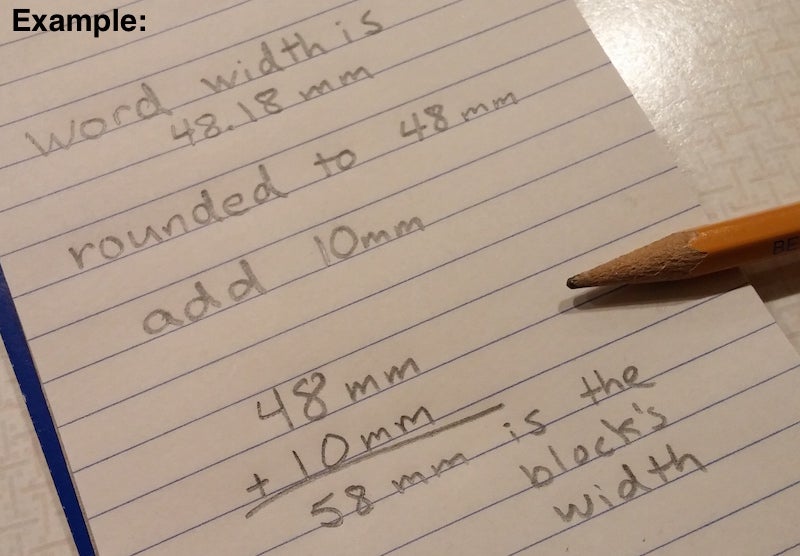 Example:
word width is
48.18 mm
rounded to 48mm
add 10mm
48 mm
+ 10mm
58 mm is the
block's
width
BE